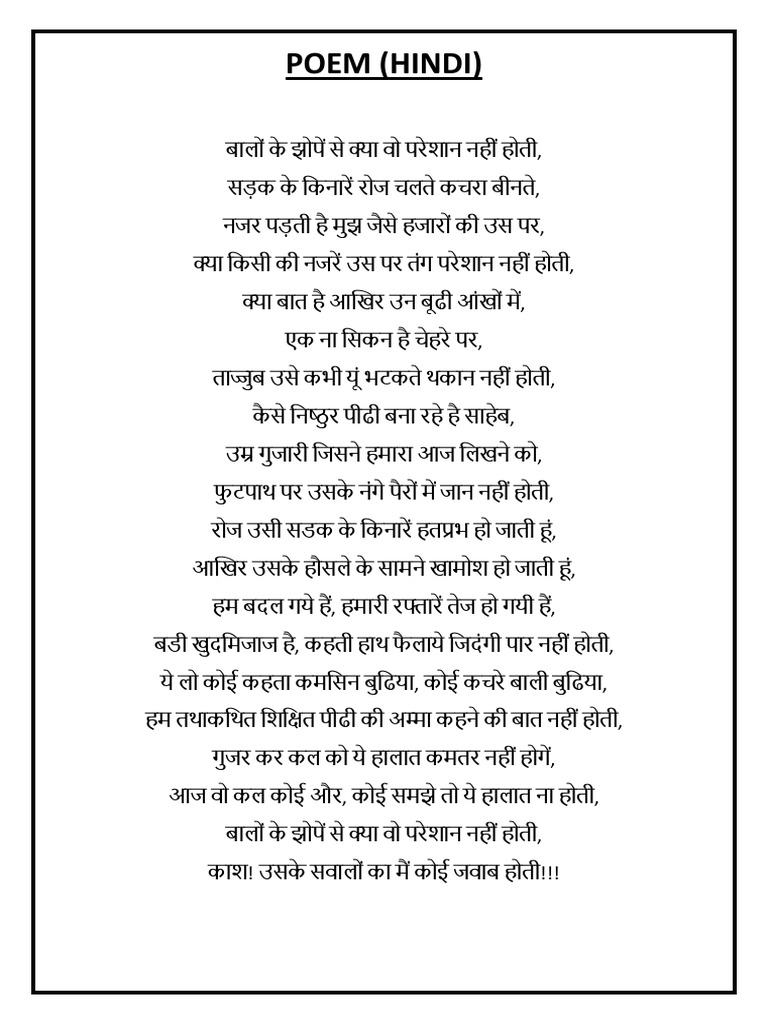 POEM (HINDI)
बालों के झोपें से क्या वो परेशान नहीं होती,
सड़क के किनारें रोज चलते कचरा बीनते,
नजर पड़ती है मुझ जैसे हजारों की उस पर,
क्या किसी की नजरें उस पर तंग परेशान नहीं होती,
क्या बात है आखिर उन बूढी आंखों में,
एक ना सिकन है चेहरे पर,
ताज्जुब उसे कभी यूं भटकते थकान नहीं होती,
कैसे निष्ठुर पीढी बना रहे है साहेब,
उम्र गुजारी जिसने हमारा आज लिखने को,
फुटपाथ पर उसके नंगे पैरों में जान नहीं होती,
रोज उसी सडक के किनारें हतप्रभ हो जाती हूं,
आखिर उसके हौसले के सामने खामोश हो जाती हूं,
हम बदल गये हैं, हमारी रफ्तारें तेज हो गयी हैं,
बडी खुदमिजाज है, कहती हाथ फैलाये जिदंगी पार नहीं होती,
ये लो कोई कहता कमसिन बुढिया, कोई कचरे बाली बुढिया,
हम तथाकथित शिक्षित पीढी की अम्मा कहने की बात नहीं होती,
गुजर कर कल को ये हालात कमतर नहीं होगें,
आज वो कल कोई और, कोई समझे तो ये हालात ना होती,
बालों के झोपें से क्या वो परेशान नहीं होती,
काश! उसके सवालों का मैं कोई जवाब होती!!!